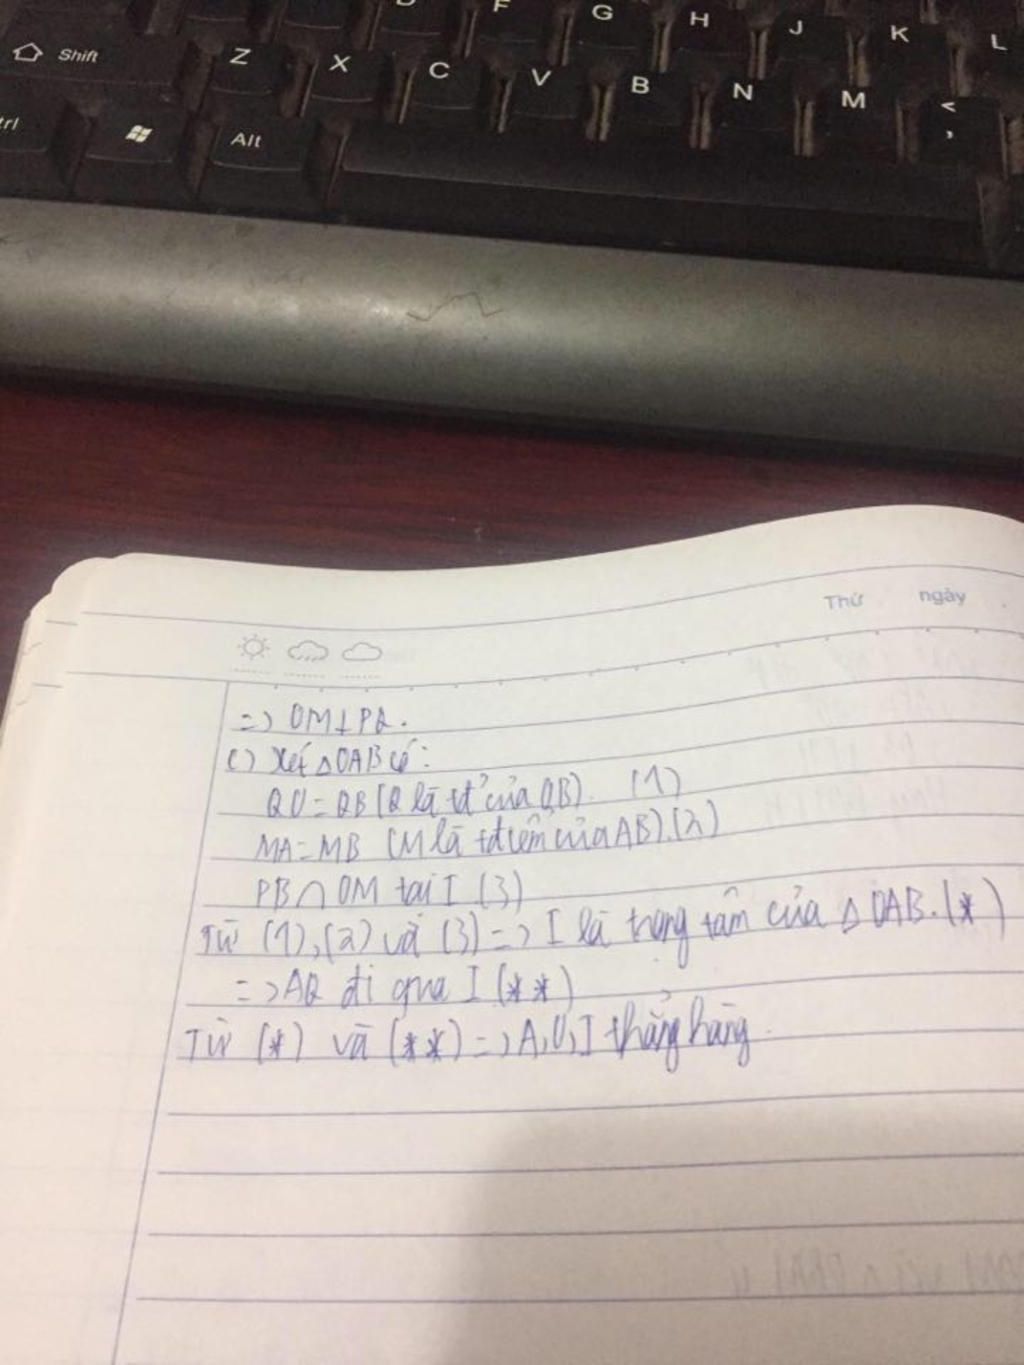 D F G H J K L
Shift Z X C V B N M <
,
trl Alt
Thứ ngày
=> OM⊥PQ.
c) Xét △OAB có:
QO=QB (Q là tđ của OB). (1)
MA=MB (M là tđiểm của AB).(2)
PB∩OM tại I (3)
Từ (1),(2) và (3)=> I là trọng tâm của △OAB.(*)
=>AQ đi qua I (**)
Từ (*) và (**)=>A,O,I thẳng hàng.